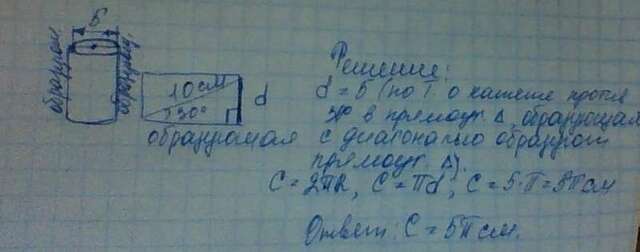 5
образующ.
образующ.
10 см
30°
d
образующая
Решение:
d = 5 (по Т. о катете против
30° в прямоуг. Δ, образующая
с диагональю образуют
прямоуг. Δ).
C = 2πR, C = πd, C = 5·π = 5π см
Ответ: C = 5π см.